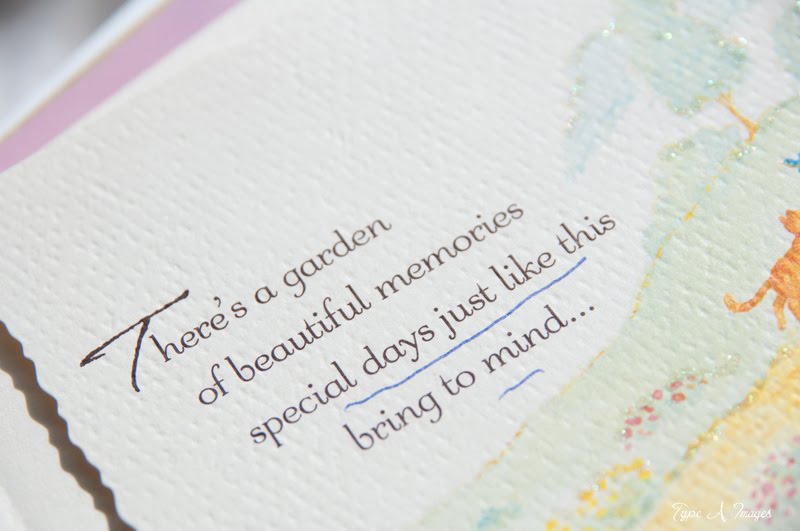 There's a garden
of beautiful memories
special days just like this
bring to mind...
Type A Images